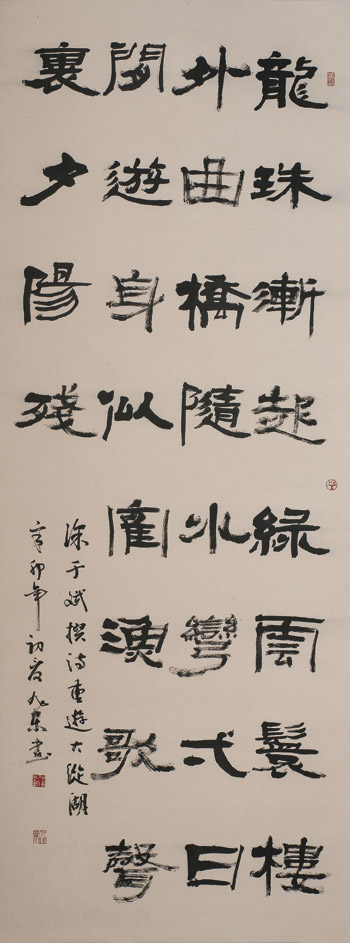 龍珠漸起綠雲鬟樓
外曲橋隨水彎弌日
閒遊身似漁歌聲
裏夕陽殘
于斌撰詩重遊大縱湖
辛卯年初書